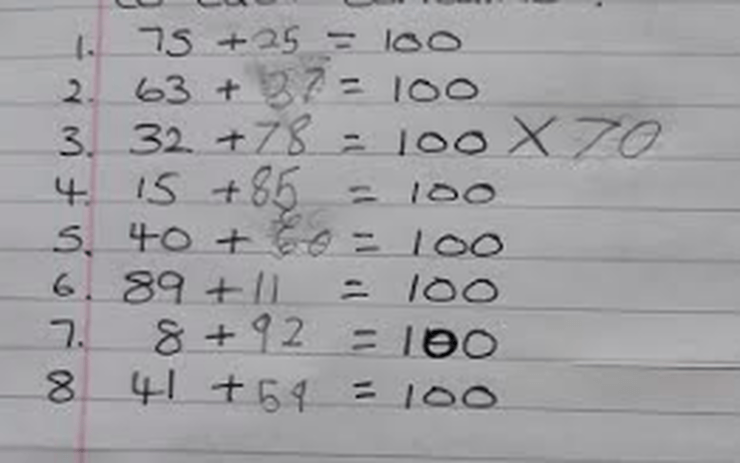 1. 75 + 25 = 100
2. 63 + 37 = 100
3. 32 + 78 = 100 X 70
4. 15 + 85 = 100
5. 40 + 60 = 100
6. 89 + 11 = 100
7. 8 + 92 = 100
8 41 + 59 = 100